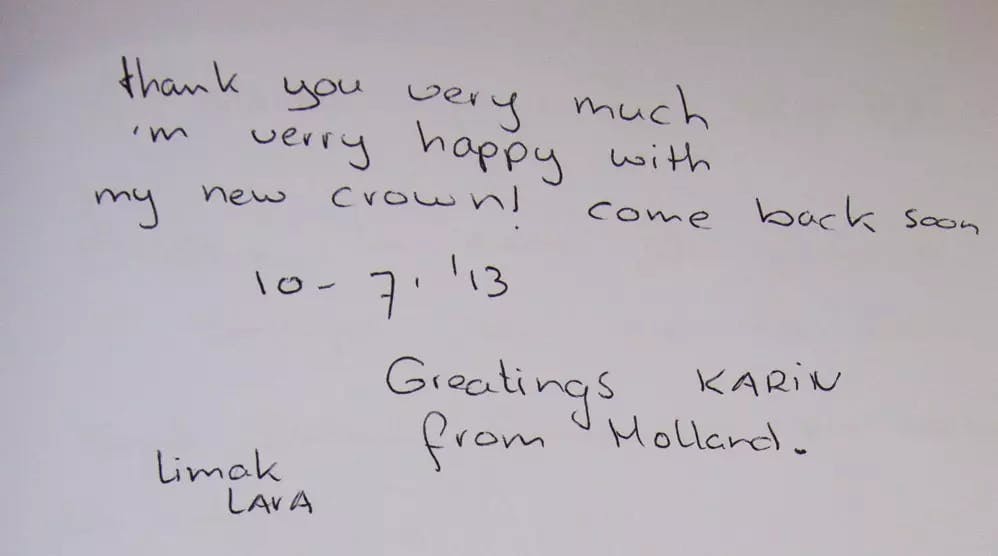 thank you very much
'm verry happy with
my new crown! come back soon
10- 7. '13
Greatings KARiN
from Holland.
Limak
LAVA